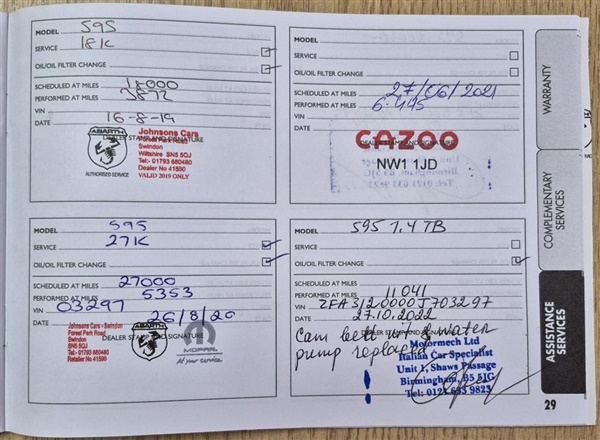 MODEL 595
SERVICE 18K
OIL/OIL FILTER CHANGE
SCHEDULED AT MILES 18000
PERFORMED AT MILES 3872
VIN
DATE 16-8-19
DEALER STAMP AND SIGNATURE
ABARTH
AUTHORISED SERVICE
Johnsons Cars
Forest Park Road
Swindon
Wiltshire SN5 5QJ
Tel:- 01793 680480
Dealer No 41590
VALID 2019 ONLY
MODEL
SERVICE
OIL/OIL FILTER CHANGE
SCHEDULED AT MILES 27/06/2021
PERFORMED AT MILES 6.445
VIN
DATE
CAZOO
DEALER STAMP AND SIGNATURE
NW1 1JD
MODEL 595
SERVICE 27K
OIL/OIL FILTER CHANGE
SCHEDULED AT MILES 27000
PERFORMED AT MILES 5353
VIN 03297
DATE 26/8/20
DEALER STAMP AND SIGNATURE
Johnsons Cars - Swindon
Forest Park Road
Swindon
SN5 5QJ
Tel: 01793 680480
Retailer No 41590
ABARTH
MOPAR
At your service
MODEL 595 1.4 TB
SERVICE
OIL/OIL FILTER CHANGE
SCHEDULED AT MILES
PERFORMED AT MILES 11041
VIN ZFA3120000J703297
DATE 27.10.2022
DEALER STAMP AND SIGNATURE
Cam belt & water
pump replaced
Motormech Ltd
Italian Car Specialist
Unit 1, Shaws Passage
Birmingham, B5 5JG
Tel: 0121 633 9823
WARRANTY
COMPLEMENTARY
SERVICES
ASSISTANCE
SERVICES
29